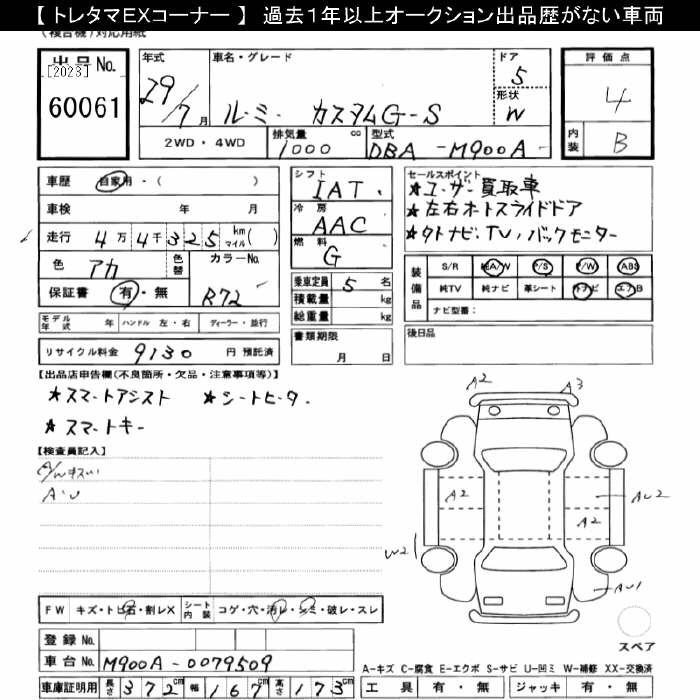 【 トレタマEXコーナー 】 過去1年以上オークション出品歴がない車両
(複合機)対応用紙
出品No.
[2023]
60061
年式
29/7月
車名・グレード
ルーミー カスタムG-S
ドア
5
形状
W
評価点
4
内装
B
2WD・4WD
排気量
1000 cc
型式
DBA -M900A-
車歴 自家用・( )
車検 年 月
走行 4万4千325 km マイル( )
色 アカ
色替
カラーNo.
R72
保証書 有・無
シフト
IAT.
冷房
AAC
燃料
G
乗車定員 5 名
積載量 kg
総重量 kg
セールスポイント
★ユーザー買取車
★左右オートスライドドア
★外ナビ、TV、バックモニター
装備品
S/R 純A/W P/S P/W ABS
純TV 純ナビ 革シート 外ナビ エアB
ナビ型番:
モデル年式 年 ハンドル 左・右 ディーラー・並行
書類期限
月 日
後日品
リサイクル料金 9130 円 預託済
【出品店申告欄(不良箇所・欠品・注意事項等)】
★スマートアシスト ★シートヒーター.
★スマートキー
【検査員記入】
A/Wキズい
A・U
A2
A3
A2
AU2
A2
W2
AU1
FW キズ・トビ石・割レX
シート内装 コゲ・穴・汚レ・シミ・破レ・スレ
スペア
登録No.
車台No. M900A-0079509
A-キズ C-腐食 E-エクボ S-サビ U-凹ミ W-補修 XX-交換済
車庫証明用 長さ 372cm 幅 167cm 高さ 173cm
工具 有・無 ジャッキ 有・無